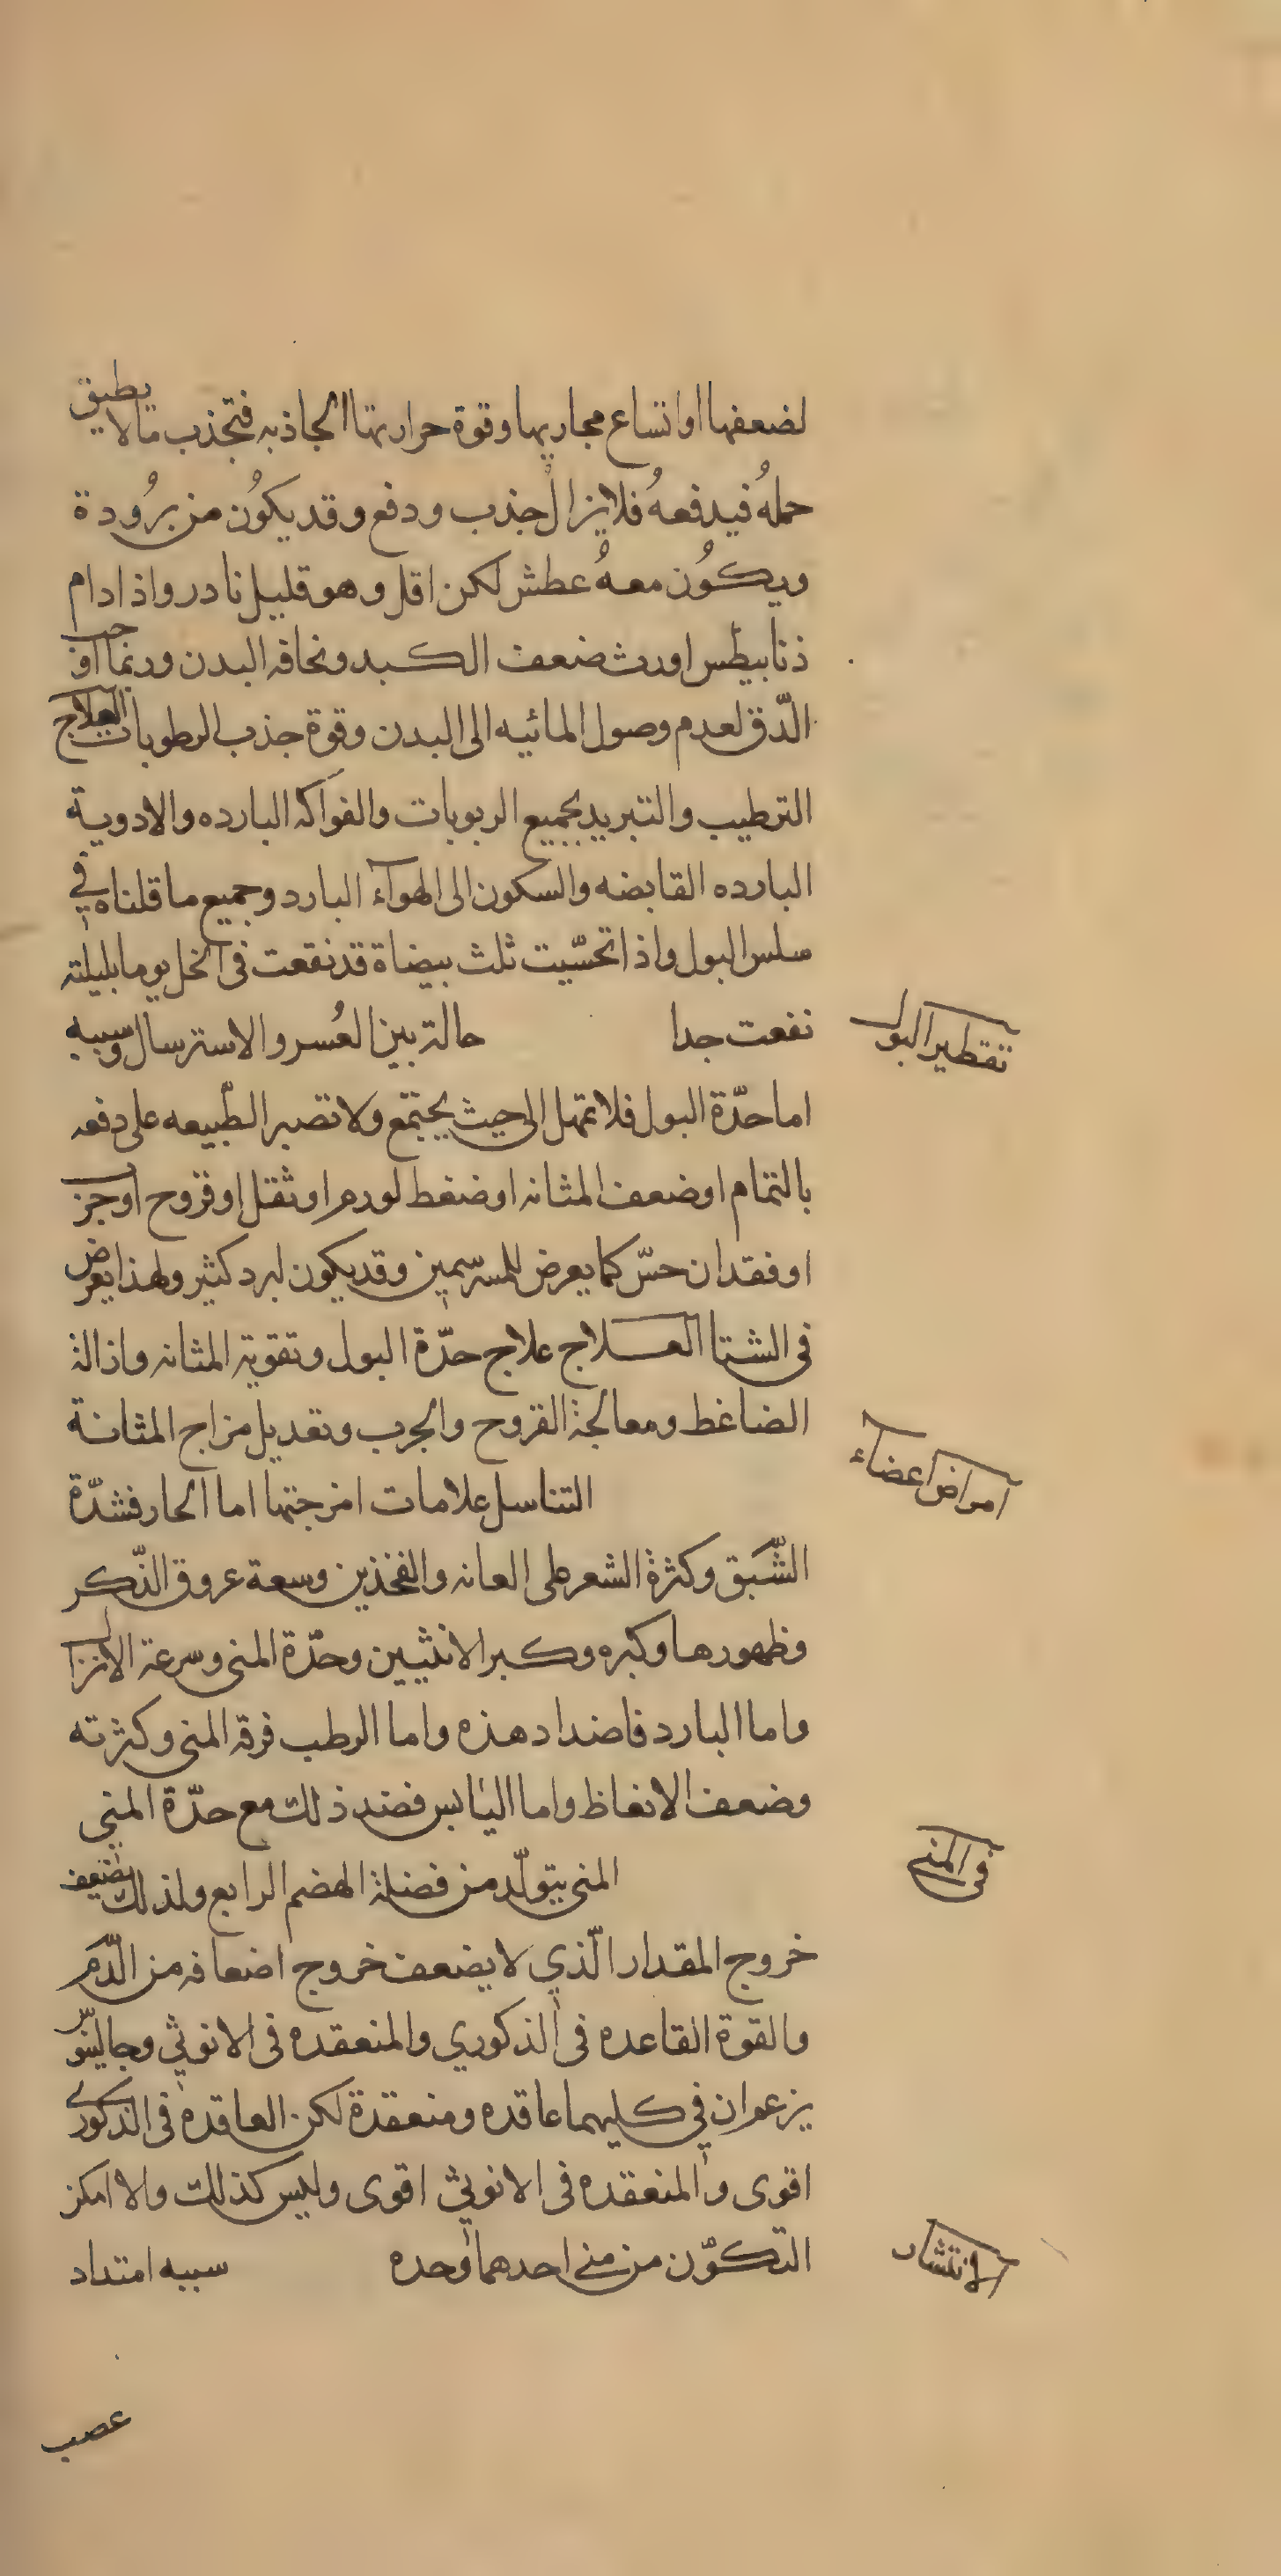 لضعفها او اتساع مجاريها وقوة حرارتها الجاذبه فتجذب ما لا يطيق
حملهُ فيدفعهُ فلا يزال جذب ودفع وقد يكوُن من برُودة
ويكوُن معهُ عطش لكن اقل وهو قليل نادر واذا دام
ذنابيطس اورث ضعف الكبد ونحافه البدن وربما اوجب
الدّق لعدم وصول المائيه الى البدن وقوة جذب الرطوبات العلاج
الترطيب والتبريد بجميع الربوبات والفواكه البارده والادوية
البارده القابضه والسكون الى الهوآء البارد وجميع ما قلناه في
سلس البول واذا تحسّيت ثلث بيضاة قد نقعت فى الخل يوما بليلته
تقطير البول
نفعت جدا حالة بين العُسر والاسترسال وسببه
اما حدّة البول فلا تمهل الى حيث يجتمع ولا تصبر الطّبيعه على دفعه
بالتمام او ضعف المثانه او ضغط لورم او ثقل او قروح او جرب
او فقدان حسّ كما يعرض للمسرسمين وقد يكون لبرد كثير ولهذا يعرض
فى الشتا العلاج علاج حدّة البول وتقوية المثانه وازالة
الضاغط ومعالجة القروح والجرب وتعديل مزاج المثانة
امراض اعضاء
التناسل علامات امزجتها اما الحار فشدّة
الشّبَق وكثرة الشعر على العانه والفخذين وسعة عروق الذّكر
وظهورها وكبره وكبر الانثيين وحدّة المنى وسرعة الانزال
واما البارد فاضداد هذه واما الرطب فرقه المنى وكثرته
وضعف الانعاظ واما اليابس فضد ذلك مع حدّة المنى
فى المنى
المنى يتولّد من فضلة الهضم الرابع ولذلك يضعف
خروج المقدار الّذي لا يضعف خروج اضعافه من الدّم
والقوة القاعده فى الذكوري والمنعقده فى الانوثي وجالينوس
يزعم ان في كليهما عاقده ومنعقدة لكن العاقده فى الذكوري
اقوى والمنعقده فى الانوثي اقوى وليس كذلك والا امكن
الانتشار
التكوّن من منى احدهما وحده سببه امتداد
عصب